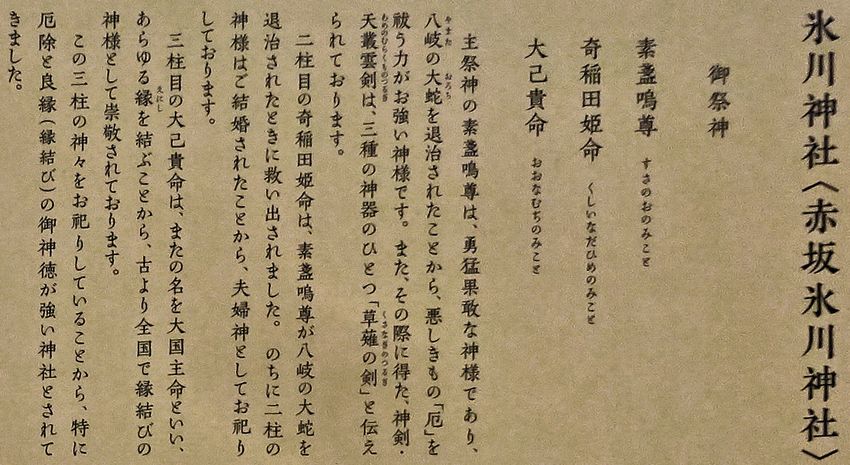 氷川神社〈赤坂氷川神社〉
御祭神
素盞嗚尊 すさのおのみこと
奇稲田姫命 くしいなだひめのみこと
大己貴命 おおなむぢのみこと
主祭神の素盞嗚尊は、勇猛果敢な神様であり、
八岐の大蛇を退治されたことから、悪しきもの「厄」を
祓う力がお強い神様です。また、その際に得た、神剣・
天叢雲剣は、三種の神器のひとつ「草薙の剣」と伝え
られております。
二柱目の奇稲田姫命は、素盞嗚尊が八岐の大蛇を
退治されたときに救い出されました。のちに二柱の
神様はご結婚されたことから、夫婦神としてお祀り
しております。
三柱目の大己貴命は、またの名を大国主命といい、
あらゆる縁を結ぶことから、古より全国で縁結びの
神様として崇敬されております。
この三柱の神々をお祀りしていることから、特に
厄除と良縁（縁結び）の御神徳が強い神社とされて
きました。